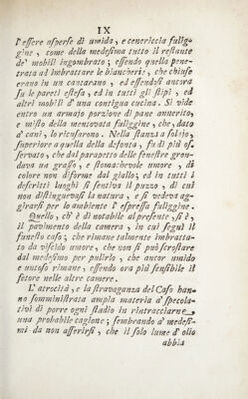 IX
l'essere asperse di umido, e cenericcia fulig-
gine, come della medesima tutto il restante
de' mobili ingombrato; essendo quella pene-
trata ad imbrattare le biancherie, che chiuse
erano in un canterano, ed essendosi ancora
su le pareti estesa, ed in tutti gli stipi, ed
altri mobili d' una contigua cucina. Si vide
entro un armajo porzione di pane annerito,
e misto della mentovata fuliggine, che, dato
a' cani, lo ricusarono. Nella stanza a solajo,
superiore a quella della defonta, fu di più os-
servato, che dal parapetto delle fenestre gron-
dava un grasso, e stomachevole umore, di
colore non diforme dal giallo; ed in tutti i
descritti luoghi si sentiva il puzzo, di cui
non distinguevasi la natura, e si vedeva ag-
girarsi per lo ambiente l' espressa fuliggine.
Quello, ch' è di notabile al presente, si è,
il pavimento della camera, in cui seguì il
funesto caso; che rimane talmente imbratta-
to da viscido umore, che non si può scrostare
dal medesimo per pulirlo, che ancor umido
e untuso rimane; essendo ora più sensibile il
fetore nelle altre camere.
L' atrocità, e la stravaganza del Caso han-
no somministrata ampla materia a' specola-
tivi di porre ogni studio in rintracciarne
una probabile cagione; sembrando a' medesi-
mi da non asserirsi, che il solo lume d' olio
abbia